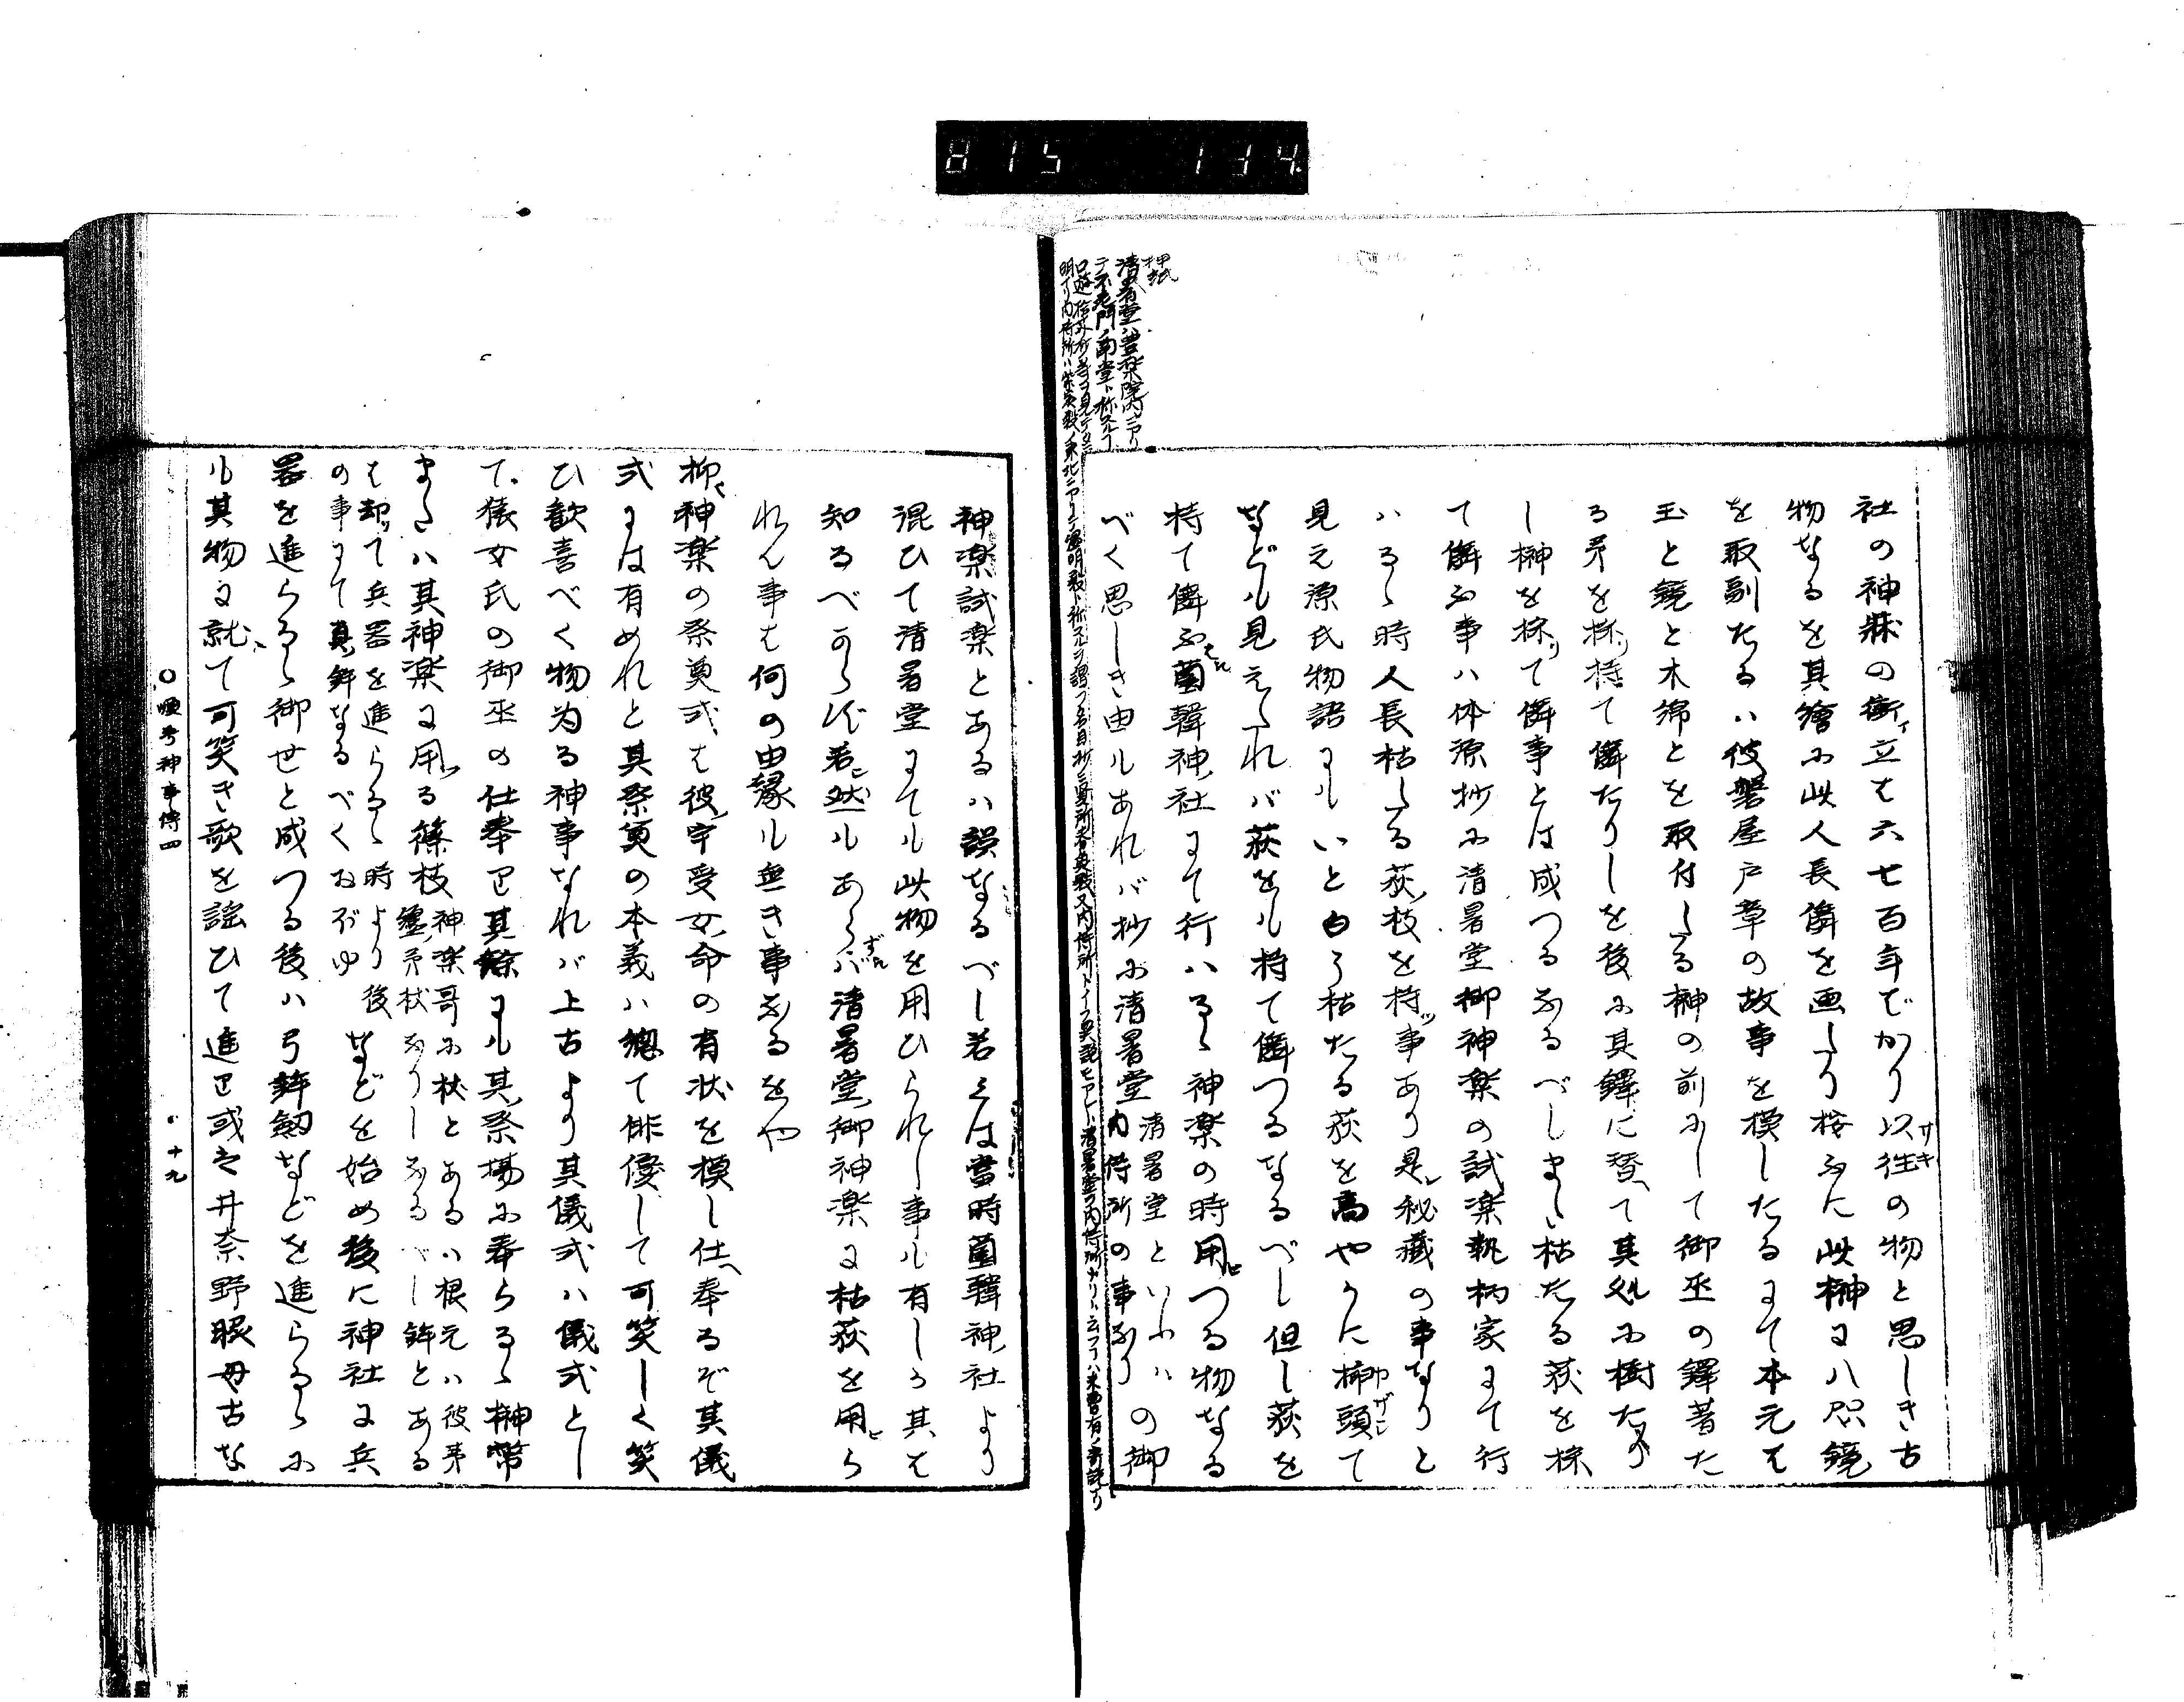 815 134
押紙
清暑堂ハ豊楽院内ニアリ
テ不老門ノ南堂ト称スルコ
社の神蔴の衝立は六七百年ばかり以往の物と思しき古
物なるを其繪に此人長儛を画したり按ふに此榊に八咫鏡
を取副たるハ彼磐屋戸章の故事を模したるにて本元は
玉と鏡と木綿とを取付たる榊の前にして御巫の鐸著た
る矛を採持て儛たりしを後に其鐸に替へて其処に樹たり
し榊を採りて儛事とは成つるなるべしまた枯たる荻を採
て儛ふ事ハ体源抄に清暑堂御神楽の試楽執柄家にて行
ハるゝ時人長枯たる荻枝を持ツ事あり是レ秘蔵の事なりと
見え源氏物語にもいと白う枯たる荻を高やかに挿頭て
なども見えたれバ荻をも持て儛つるなるべし但し荻を
持て儛ふ薗韓神ノ社にて行ハるゝ神楽の時用ヒつる物なる
べく思しき由もあれバ抄に清暑堂
清暑堂といふハの御
内侍所の事なり
神楽試楽とあるハ誤なるべし若くは當時薗韓神ノ社より
混ひて清暑堂にても此物を用ひられし事も有しか其は
知るべからず若シ然もあらずバ清暑堂ノ御神楽に枯荻を用ヒら
れん事は何の由縁も無き事なるをや
抑々神楽の祭奠式は彼ノ宇受女ノ命の有状を模し仕へ奉るぞ其儀
式には有めれと其祭奠の本義ハ總て俳優して可笑しく笑
ひ歓喜べく物為る神事なれバ上古より其儀式ハ儀式とし
て猿女氏の御巫の仕奉り其餘にも其ノ祭場に奉らるゝ榊幣
またハ其神楽に用フる篠枝
神楽哥に杖とあるハ根元ハ彼ノ茅
纏ノ矛杖なりしなるべし鉾とある
は却りて兵器を進らるゝ時より後
の事にて真ノ鉾なるべくおぼゆ
などを始め後に神社に兵
器を進らるゝ御世と成つる後ハ弓鉾劔などを進らるゝに
も其物に就て可笑き歌を謡ひて進り或は井奈野眼母古な
○順考神事傳四
十九